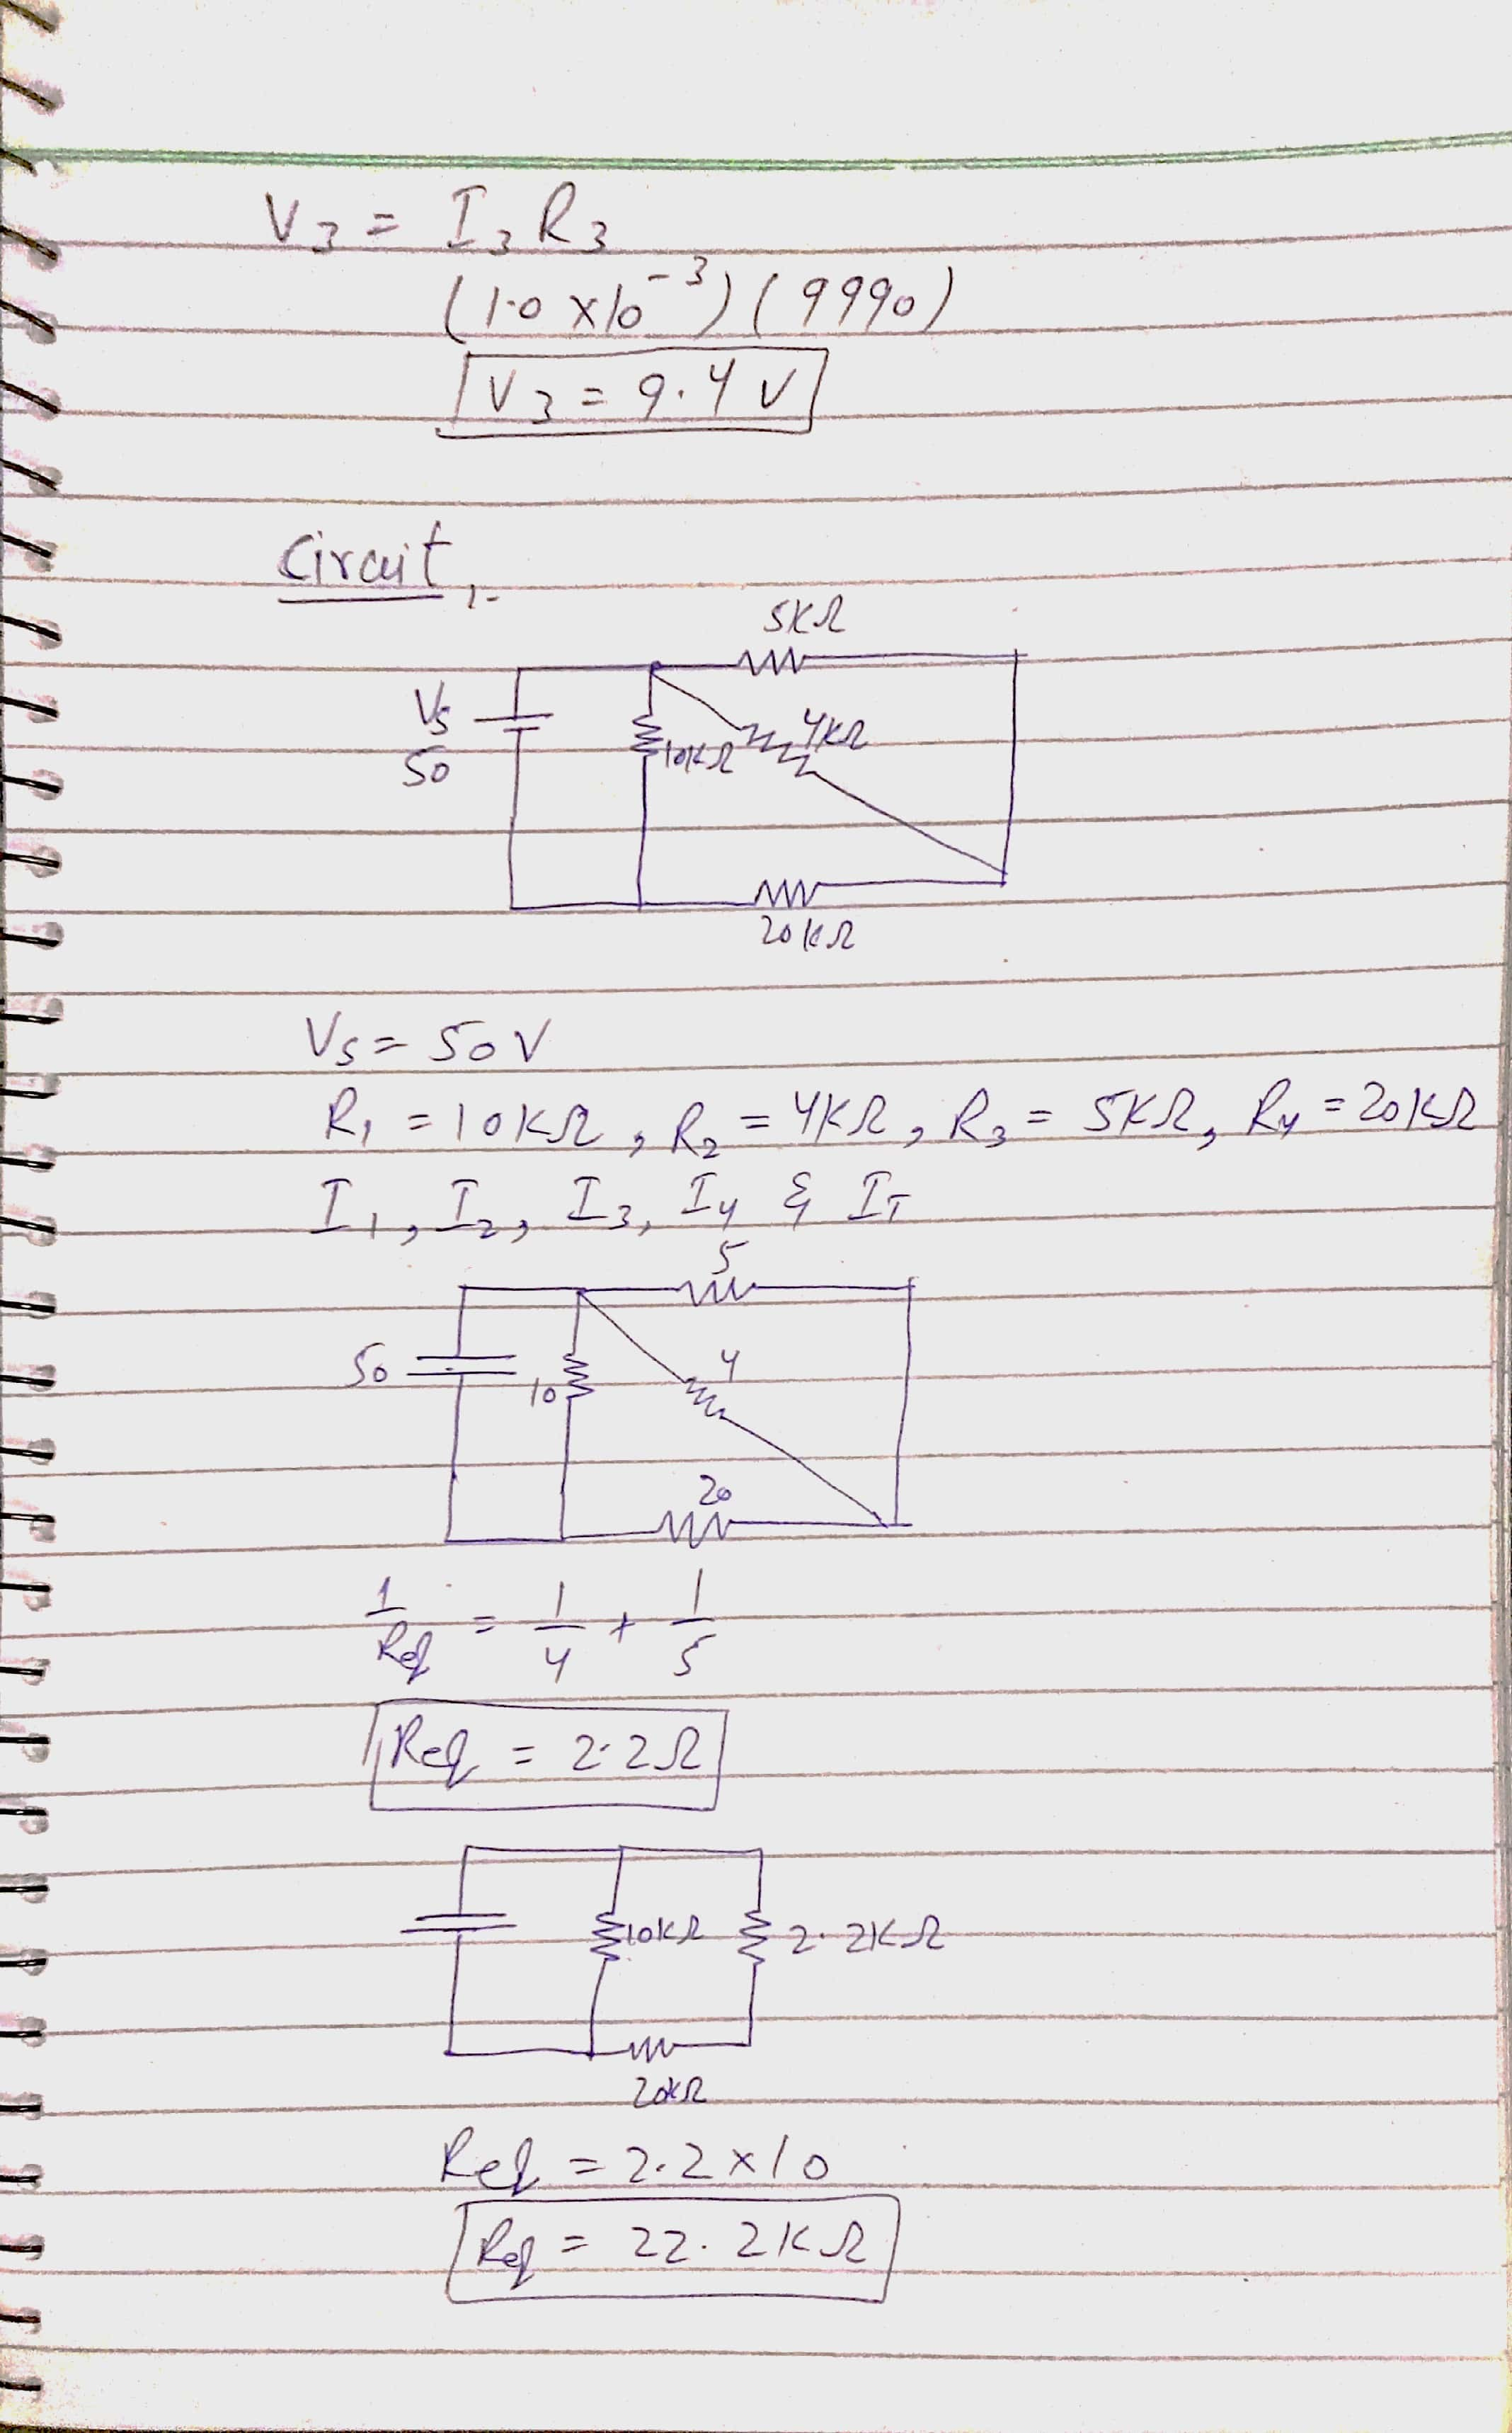 V3 = I3 R3
(1.0 x10^-3) (9990)
V3 = 9.4 V
Circuit :-
5KΩ
Vs
50
10KΩ
4KΩ
20KΩ
Vs = 50V
R1 = 10KΩ, R2 = 4KΩ, R3 = 5KΩ, R4 = 20KΩ
I1, I2, I3, I4 & IT
5
50
10
4
20
1/Req = 1/4 + 1/5
Req = 2.2Ω
10KΩ
2.2KΩ
20KΩ
Req = 2.2 x 10
Req = 22.2KΩ